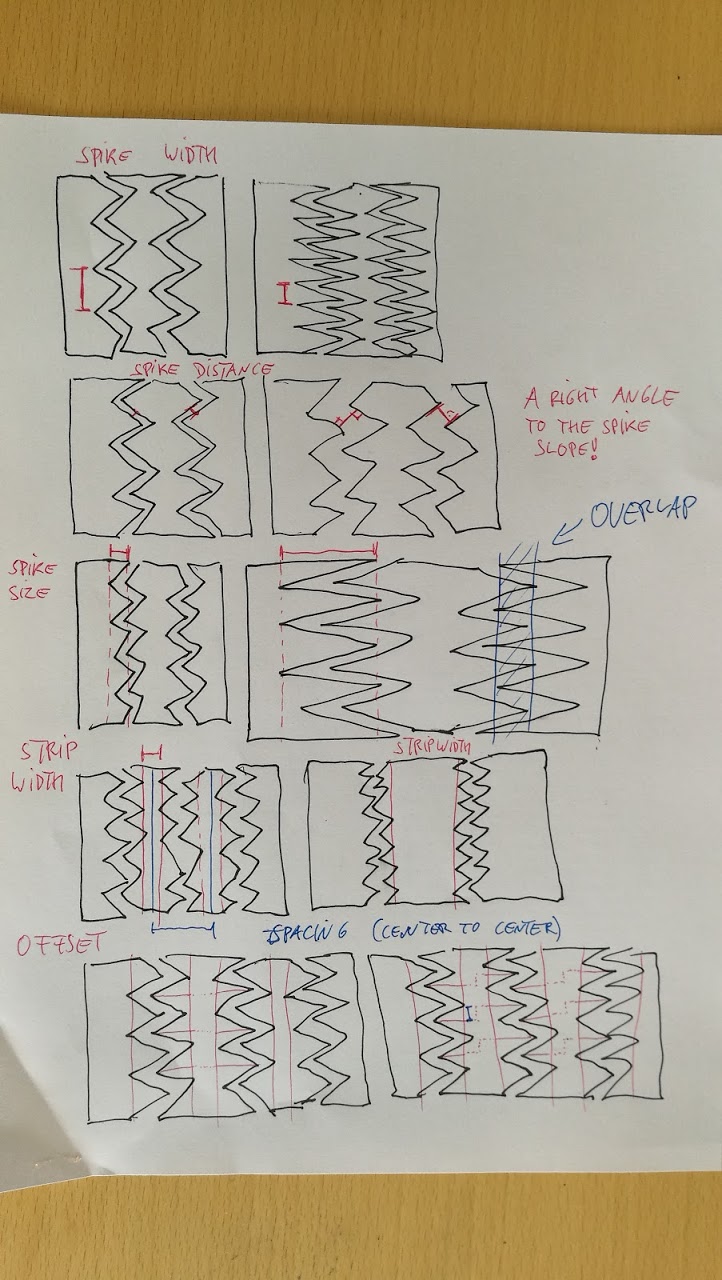 SPIKE WIDTH
SPIKE DISTANCE
A RIGHT ANGLE
TO THE SPIKE
SLOPE!
OVERLAP
SPIKE
SIZE
STRIP
WIDTH
STRIPWIDTH
SPACING (CENTER TO CENTER)
OFFSET